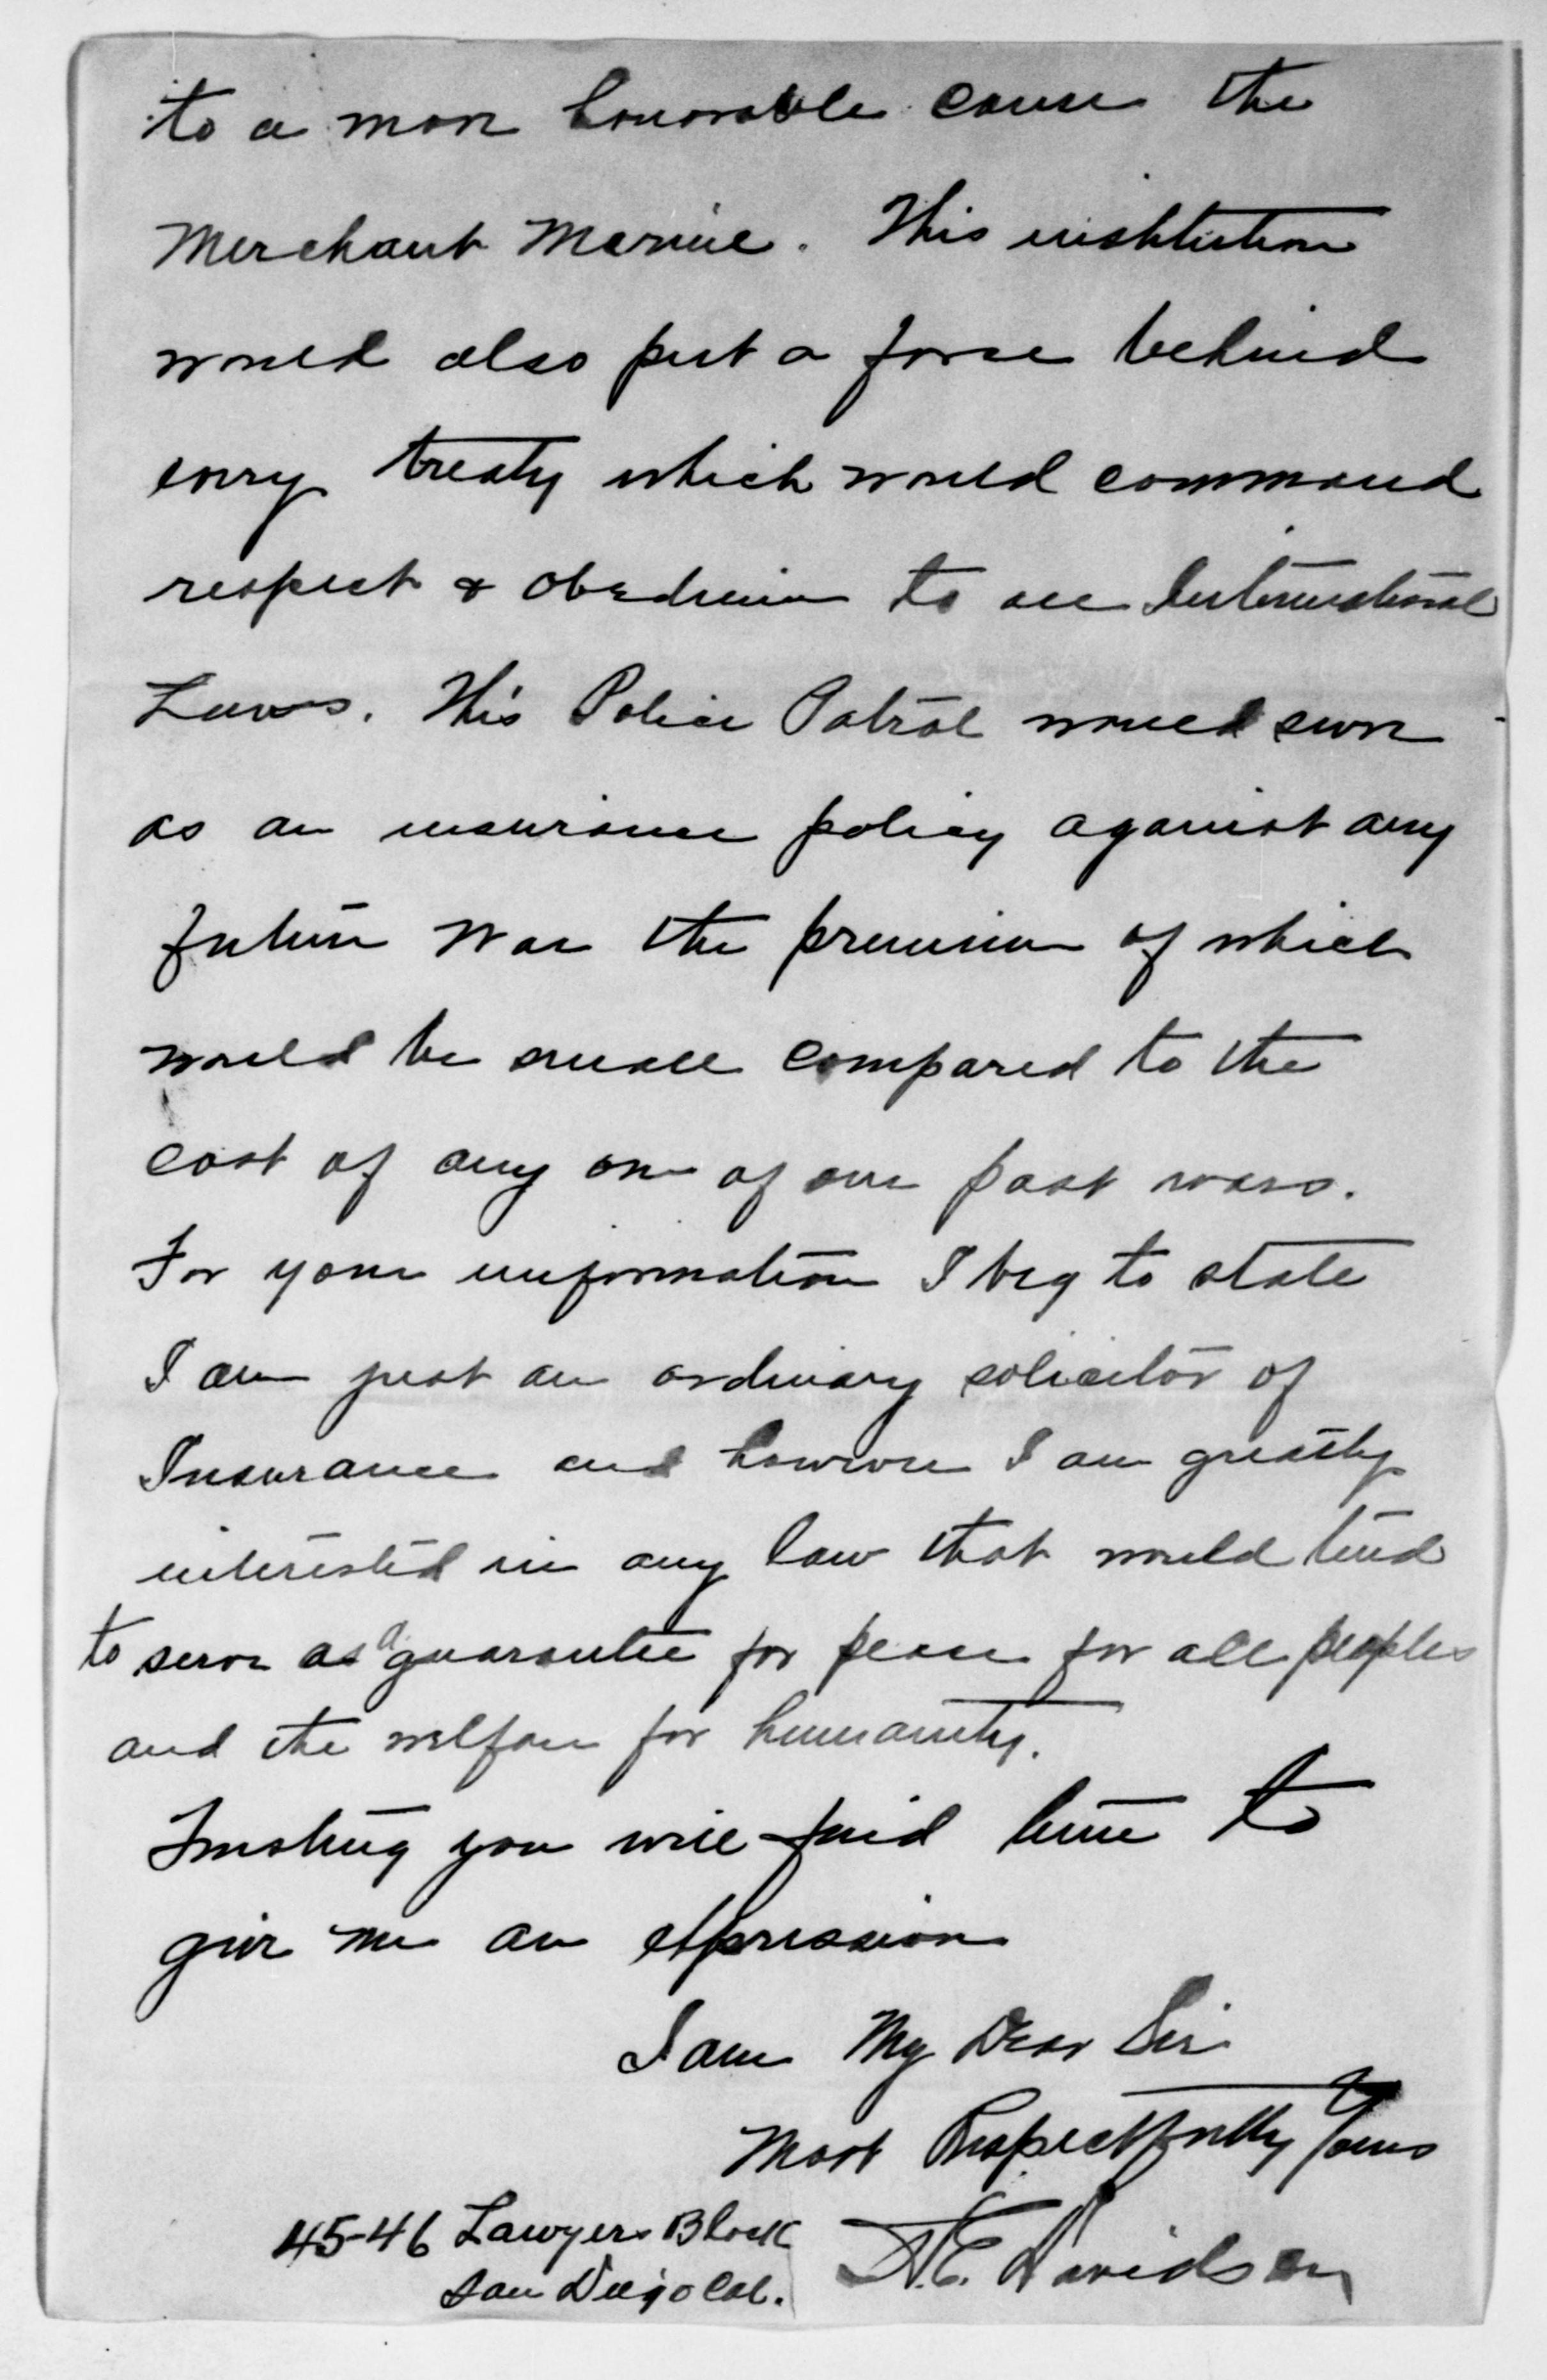 to a more honorable cause the
Merchant Marine. This institution
would also put a force behind
every treaty which would command
respect & obedience to all International
Laws. This Police Patrol would serve
as an insurance policy against any
future war the premium of which
would be small compared to the
cost of any one of our past wars.
For your information I beg to state
I am just an ordinary solicitor of
Insurance and however I am greatly
interested in any law that would tend
to serve as a guarantee for peace for all peoples
and the welfare for humanity.
Trusting you will find time to
give me an expression
I am My Dear Sir
Most Respectfully Yours
45-46 Lawyers Block
San Diego Cal.
E. Davidson